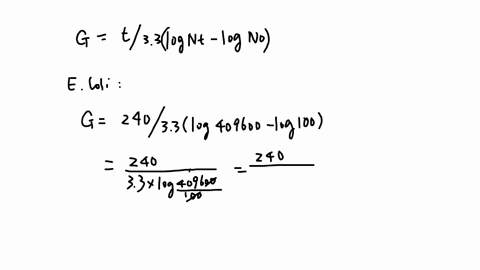 G = t/3.3(log Nt - log No)
E. Coli :
G = 240/3.3(log 409600 - log 100)
= 240/3.3×log 409600/100 = 240